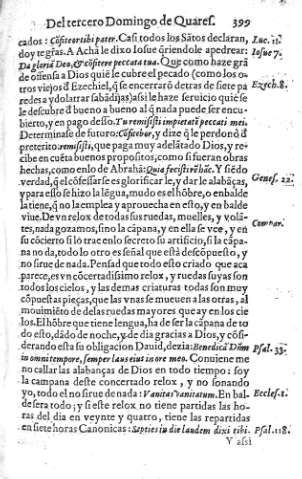 Del tercero Domingo de Quares. 399
cados: Cõfiteor tibi pater. Casi todos los Sãtos declaran, Luc. 11.
doy te grãs. A Achã le dixo Iosue q̃riendole apedrear: Iosue 7.
Da gloriã Deo, & cõfitere peccata tua. Que como haze grã
de ofensa a Dios quiẽ le cubre el pecado (como los o-
tros viejos đ Ezechiel, q̃ se encerrarõ detras de siete pa Ezech. 8.
redes a ydolatrar sabãdijas) assi le haze seruicio quiẽ se
le descubre đ bueno a bueno al q̃ nada puede ser encu-
bierto, y en pago desso. Tu remisisti impietatẽ peccati mei.
Determinase de futuro: Cõfitebor, y dize q̃ le perdonò đ
preterito: remisisti, que paga muy adelãtado Dios, y re-
cibe en cuẽta buenos propositos, como si fueran obras
hechas, como en lo de Abrahã: Quia fecisti rẽ hãc. Y siẽdo Genes. 22.
verdad, q̃ el cõfessarse es glorificar le, y dar le alabãças,
y para esso se hizo la lẽgua, mudo es el hõbre, o en balde
la tiene, q̃ no la emplea y aprouecha en esto, y en balde
viue. De vn relox de todas sus ruedas, muelles, y volã-
tes, nada gozamos, sino la cãpana, y en ella se vee, y en Compar.
su cõcierto si lo trae en lo secreto su artificio, si la cãpa-
na no da, todo lo otro es señal que està descõpuesto, y
no sirue de nada. Pensad que todo esto criado que aca
parece, es vn cõcertadissimo relox, y ruedas suyas son
todos los cielos, y las demas criaturas todas son muy
cõpuestas pieças, que las vnas se mueuen a las otras, al
mouimiẽto de de las ruedas mayores que ay en los cie
los. El hõbre que tiene lengua, ha de ser la cãpana de to
do esto, dãdo de noche, y de dia gracias a Dios, y cõsi-
derando esta su obligacion Dauid, dezia: Benedicã Dñm Psal. 33.
in omni tempore, semper laus eius in ore meo. Conuiene me
no callar las alabanças de Dios en todo tiempo: soy
la campana deste concertado relox, y no sonando
yo, todo el no sirue de nada: Vanitas vanitatum. En bal- Eccles. 1.
de sera todo; y si este relox no tiene partidas las ho-
ras del dia en veynte y quatro, tiene las repartidas
en siete horas Canonicas: Septies in die laudem dixi tibi. Psal. 118.
Y assi